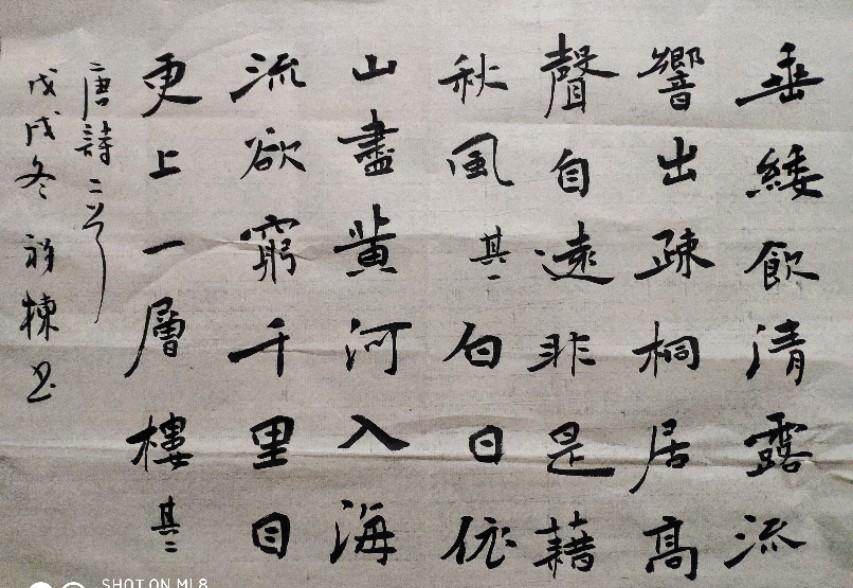 垂緌飲清露流
響出疎桐居高
聲自遠非是藉
秋風 其一 白日依
山盡黄河入海
流欲窮千里目
更上一層樓 其二
唐詩二首
戊戌冬 祥棟书
SHOT ON MI 8